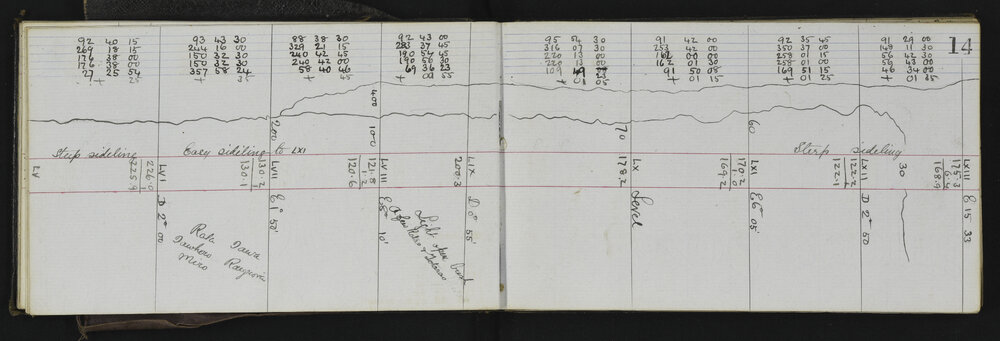 14
92 40 15
269 18 15
176 38 00
176 38 00
27 25 54
+ 25
93 43 30
244 16 00
150 32 30
150 32 30
357 58 24
+ 01
88 38 30
329 21 15
240 42 45
240 42 00
58 40 46
- 45
92 43 00
283 37 45
190 54 45
190 50 30
69 36 23
+ 00 55
95 54 30
316 07 30
220 13 00
220 13 00
109 49 23
+ 01 05
91 42 00
253 42 00
162 00 00
162 01 30
91 50 08
+ 01 15
92 35 45
350 37 00
258 01 15
258 01 00
169 51 15
+ 01 25
91 29 00
148 11 30
56 42 30
56 43 00
46 34 00
+ 01 45
200
400
100
70
60
30
Steep sideling
Easy sideling to LXI
Steep sideling
LV
225.9
226.0
LVI
130.1
130.2
LVII
120.6
1.2
121.8
LVIII
200.3
LIX
178.2
LX
169.2
1.0
170.2
LXI
122.1
122.2
LXII
168.9
6.4
175.3
LXIII
D 2° 00
E 1° 50'
E 5° 10'
D 0° 55'
Level
E 6° 05'
D 2° 50
E 15 33
Rata Tawa
Tawhero Rangiora
Miro
Light open bush
A few Matai & Totaras